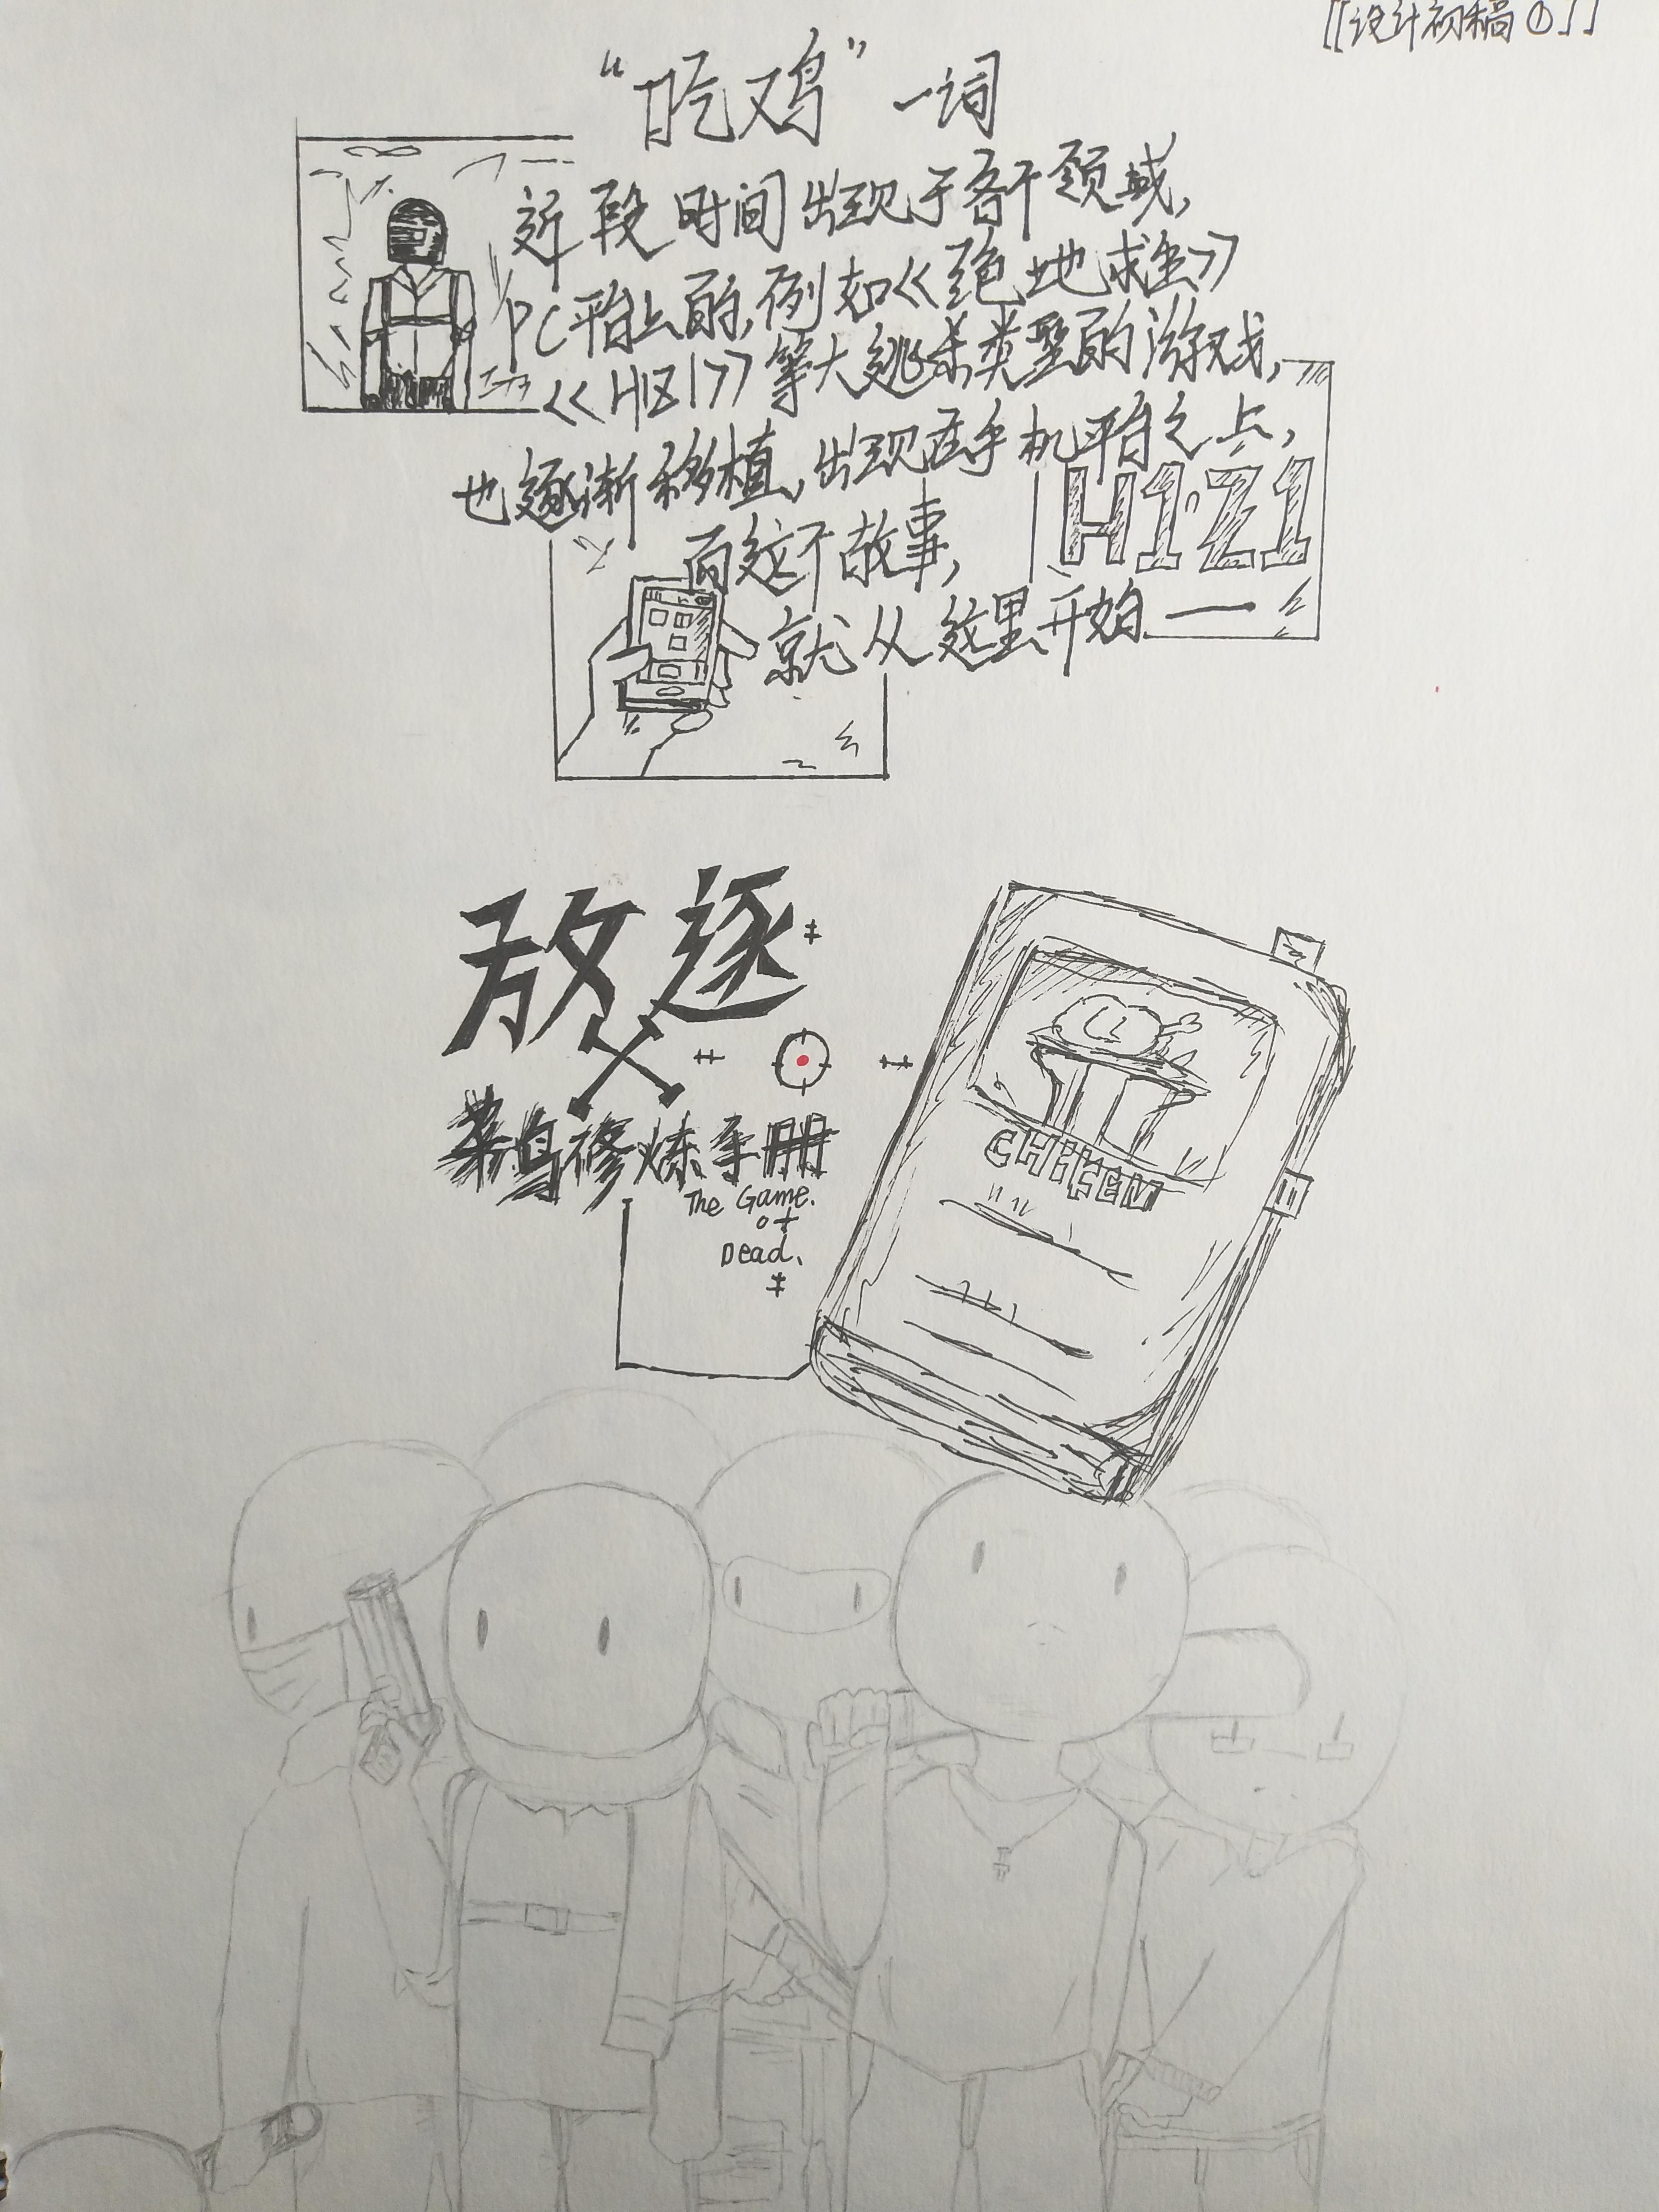 [[设计初稿①]]
“吃鸡”一词
近段时间出现于各个领域,
PC平台上的,例如《绝地求生》
《H1Z1》等大逃杀类型的游戏,
也逐渐移植,出现在手机平台之上,
H1Z1
而这个故事,
就从这里开始——
放逐
X
菜鸟修炼手册
The Game.
of
Dead.
CHIKEN